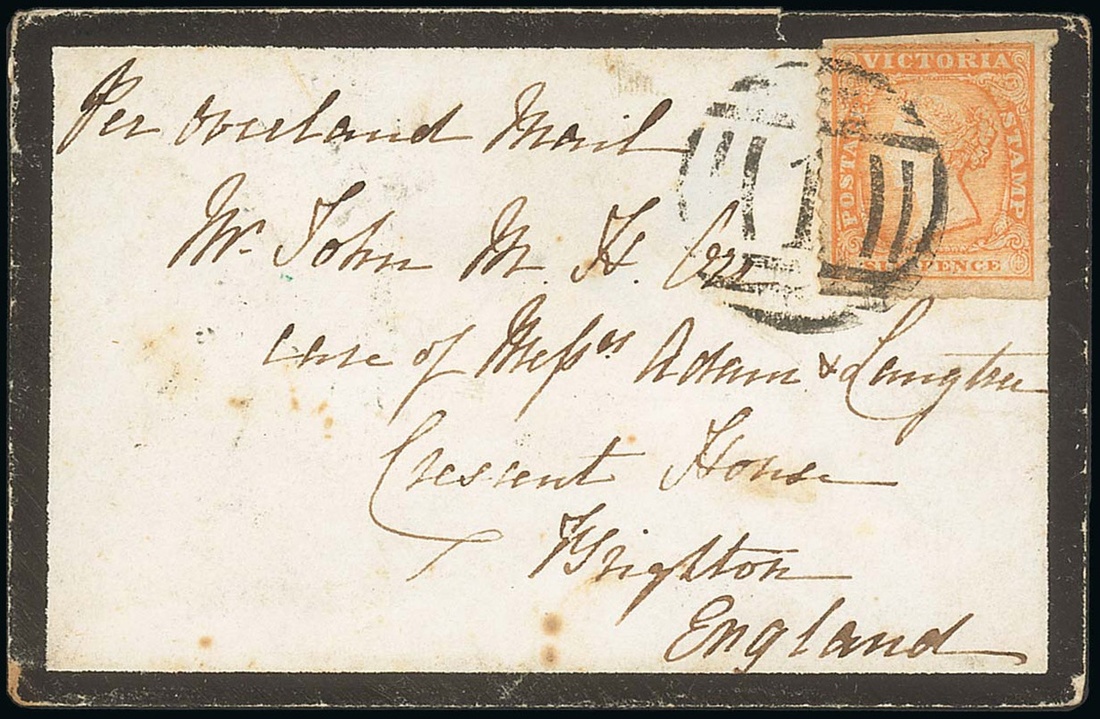 Per Overland Mail
Mr. John M. H. Orr
care of Messrs Adam & Langtree
Crescent House
Brighton
England
VICTORIA
POSTAGE STAMP
SIXPENCE
1